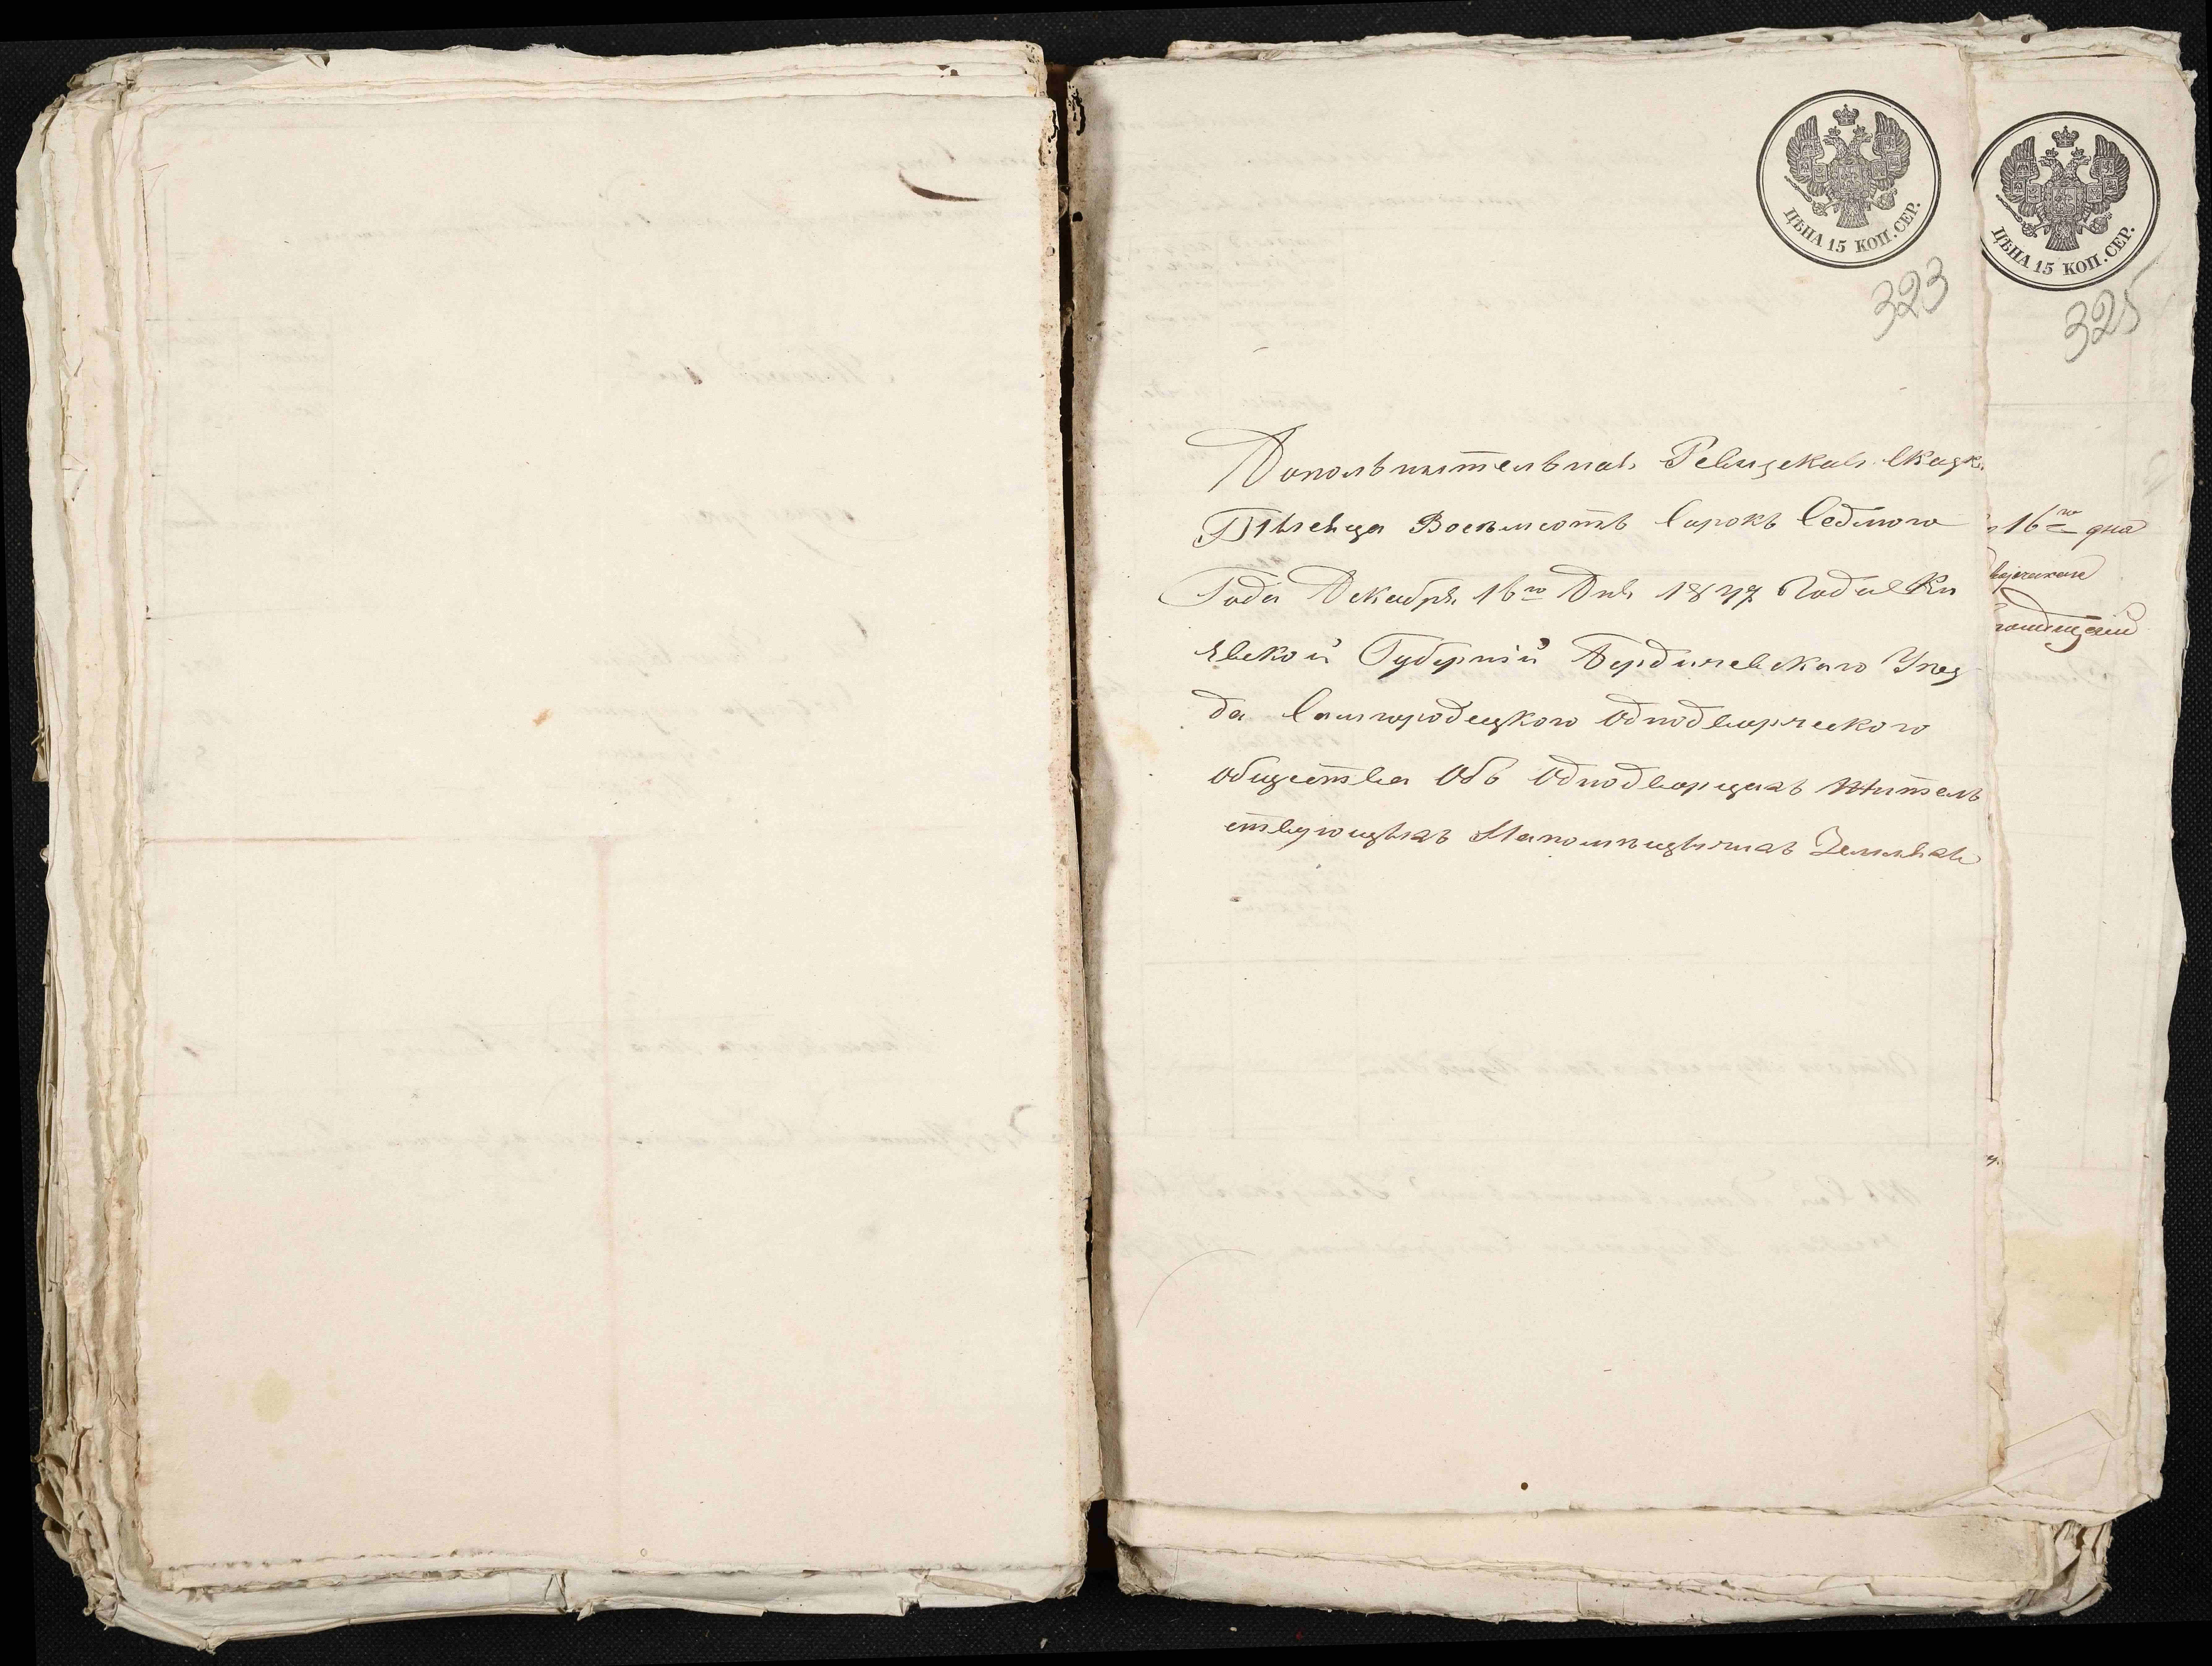 ЦѢНА 15 КОП. СЕР.
323
Дополънителъная Ревизская Сказка
Тысеща Восемъсотъ Сорокъ Седмого
Года Декабря 16го Дня 1847 Года Ки
евской Губерніи Бердичевского Уез
да Самгородецкого Однодворческого
общества Объ Однодворцахъ Жителъ
ствующыхъ Напомѣщычихъ Земляхъ
ЦѢНА 15 КОП. СЕР.
325
16го дня